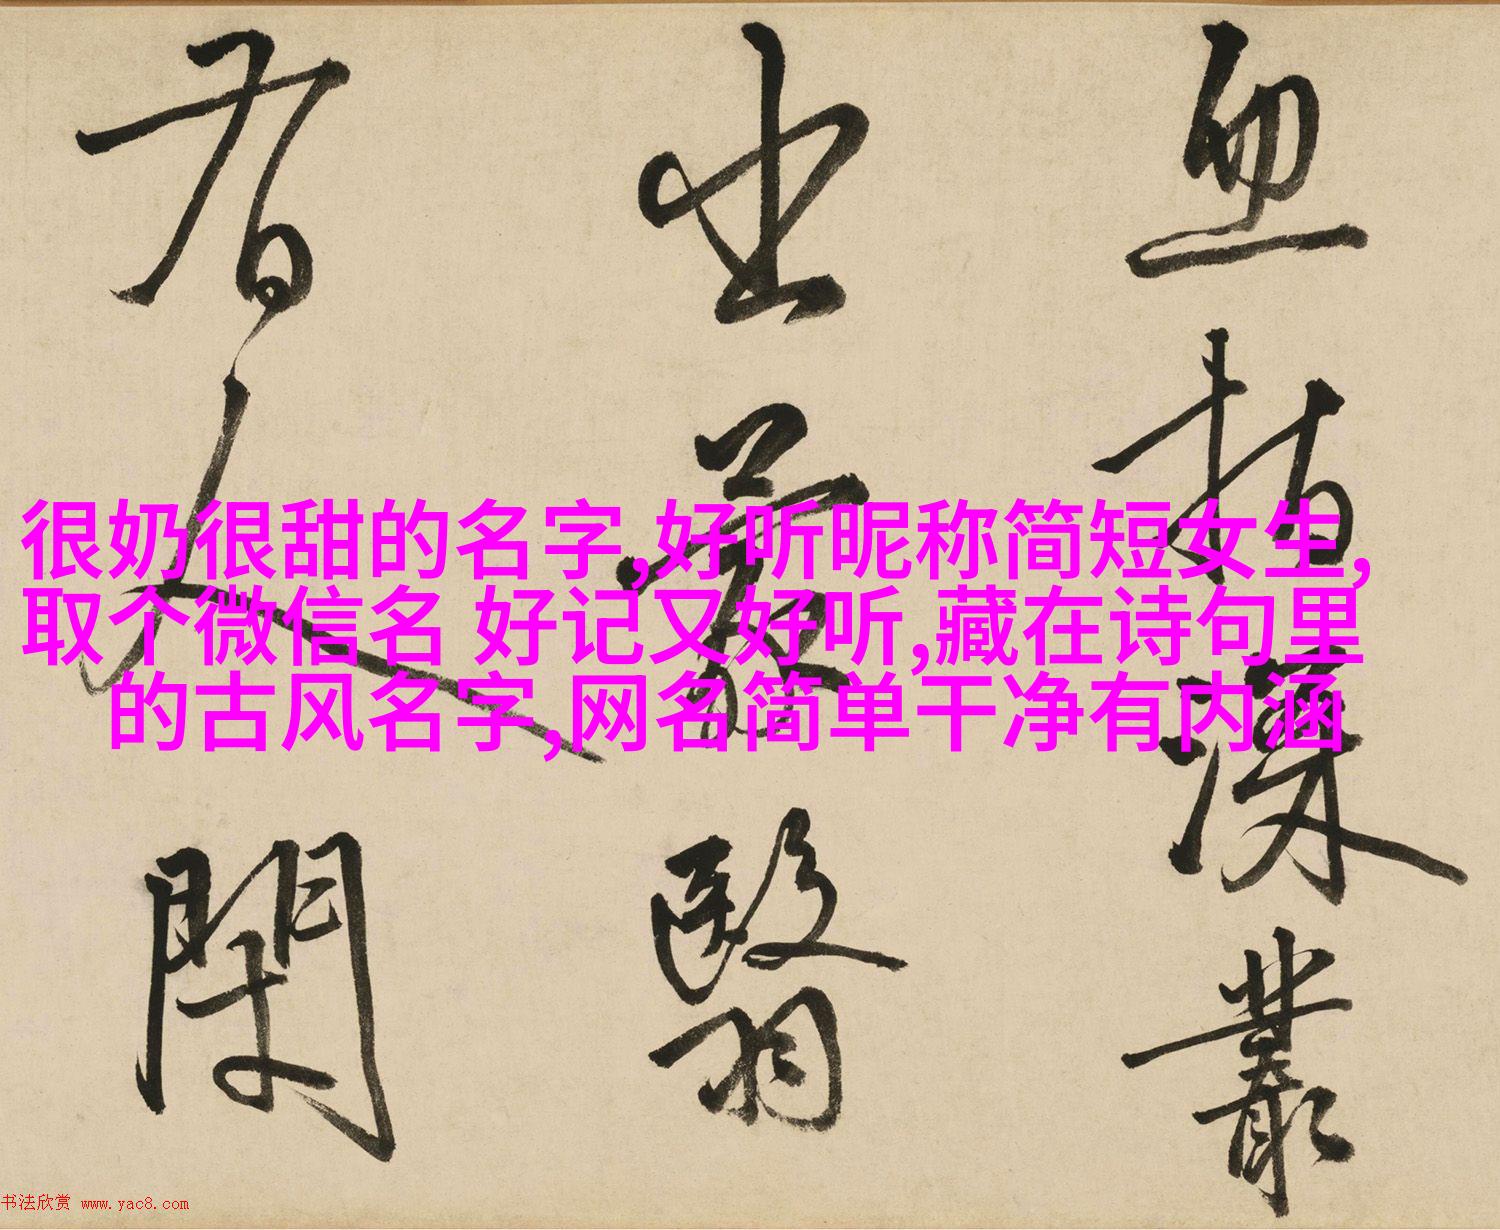 很奶很甜的名字,好听昵称简短女生,
取个微信名 好记又好听,藏在诗句里
的古风名字,网名简单干净有内涵
叢
出
翳
书法欣赏 www.yac8.com